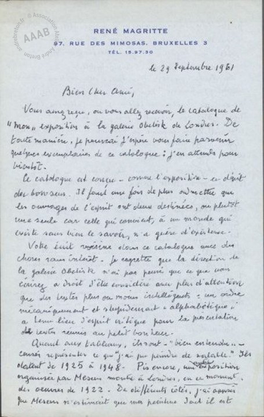 AAAB
RENÉ MAGRITTE
97, RUE DES MIMOSAS, BRUXELLES 3
TÉL. 15.97.30
le 29 septembre 1961
Bien cher ami,
Vous avez reçu, ou vous allez recevoir, le catalogue de
"mon" exposition à la galerie Obelisk de Londres. De
toute manière, je pense
quelques exemplaires de ce catalogue : j'en attends pour
bientôt.
Le catalogue est conçu - comme l'exposition - en dépit
du bon sens. Il faut une fois de plus admettre que
les ouvrages de l'esprit ont deux destinées, ou plutôt
une seule car celle qui convient, à un monde qui
existe sans bien le savoir, n'a guère d'existence.
Votre écrit voisine dans ce catalogue avec des
choses sans intérêt. Je regrette que la direction de
la galerie Obelisk n'ait pas pensé que ce que vous
écrivez a droit d'être considéré avec plus d'attention
que des textes plus ou moins intelligents : un ordre
mécaniquement et stupidement "alphabétique"
a tenu lieu d'esprit critique pour la présentation
des textes réunis au petit bonheur.
Quant aux tableaux, ils sont "bien entendu"
censés représenter ce que j'ai pu peindre de valable
datent de 1925 à 1948. Pis encore, une exposition
organisée par Mesens montre à Londres, en ce moment
des œuvres de 1922. De différents côtés, j'ai appris
que Mesens n'estimait que ma peinture dont il est